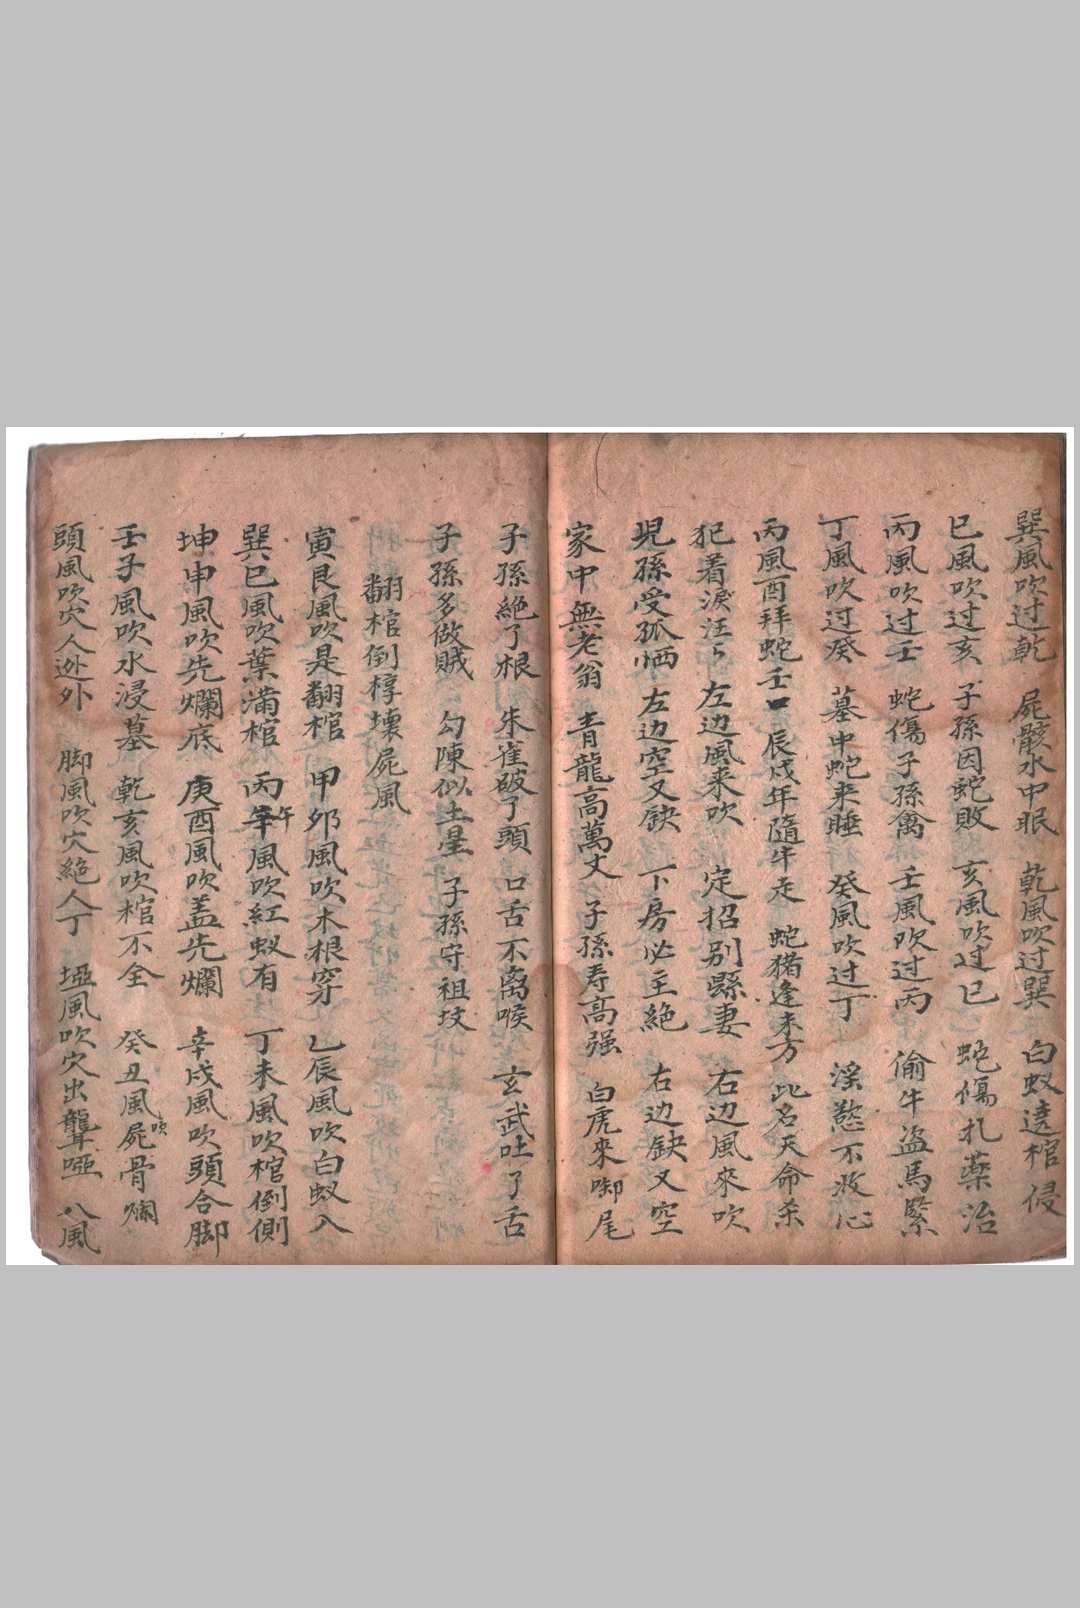 巽風吹过乾　屍骸水中眠　乾風吹过巽　白蚁遶棺侵
巳風吹过亥　子孫因蛇敗　亥風吹过巳　蛇傷扎藥治
丙風吹过壬　蛇傷子孫禽　壬風吹过丙　偷牛盗馬緊
丁風吹过癸　墓中蛇来睡　癸風吹过丁　淫慾不收心
丙風酉拜蛇壬口　辰戌年隨牛走　蛇猪逢未方　此名天命杀
犯着淚汪々　左边風来吹　定招别縣妻　右边風來吹
児孫受孤恓　左边空又缺　下房必主絶　右边缺又空
家中無老翁　青龍高萬丈　子孫寿高强　白虎來啣尾
子孫絶了根　朱雀破了頭　口舌不离喉　玄武吐了舌
子孫多做賊　勾陳似土星　子孫守祖坟
翻棺倒椁壊屍風
寅艮風吹是翻棺　甲卯風吹木根穿　乙辰風吹白蚁入
巽巳風吹葉满棺　丙午風吹紅蚁有　丁未風吹棺倒側
坤申風吹先爛底　庚酉風吹盖先爛　辛戌風吹頭合脚
壬子風吹水浸墓　乾亥風吹棺不全　癸丑風吹屍骨爛
頭風吹穴人迯外　脚風吹穴絶人丁　風吹穴出聾啞　八風